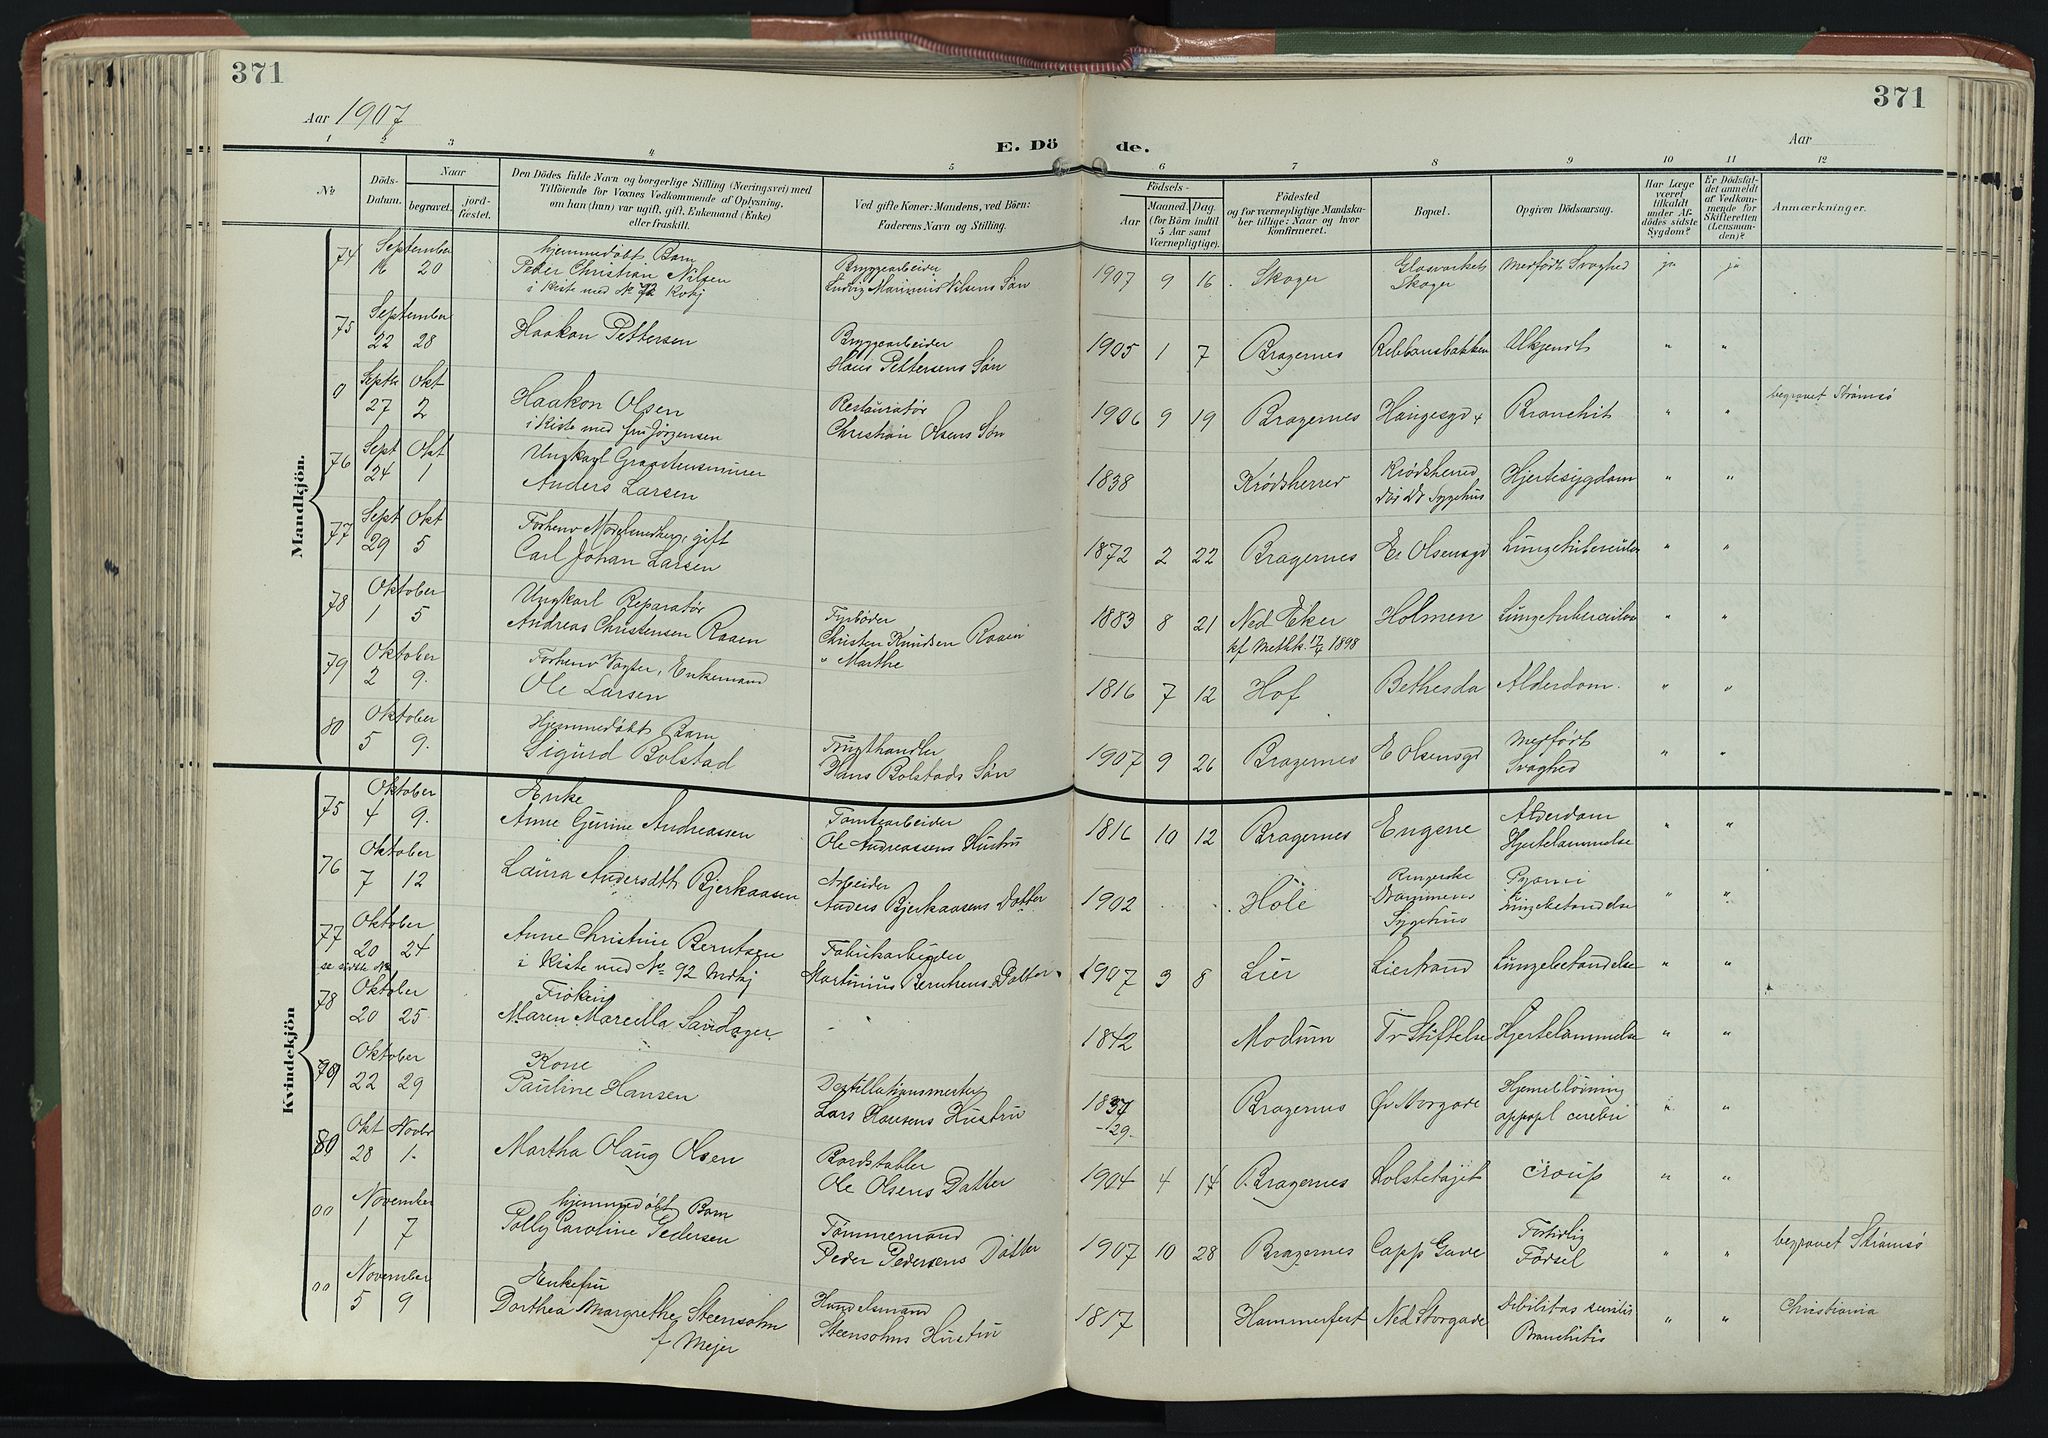 371
371
Aar 1907
Aar
E. Dö de.
1 2 3 4 5 6 7 8 9 10 11 12
No
Döds-
Datum.
Naar
begravet.
jord-
fæstet.
Den Dödes fulde Navn og borgerlige Stilling (Næringsvei) med
Tilföiende for Voxnes Vedkommende af Oplysning,
om han (hun) var ugift, gift, Enkemand (Enke)
eller fraskilt.
Ved gifte Koner: Mandens, ved Börn:
Faderens Navn og Stilling.
Födsels-
Aar
Maaned. Dag.
(for Börn indtil
5 Aar samt
Værnepligtige).
Födested
og for værnepligtige Mandska-
ber tillige: Naar og hvor
konfirmeret.
Bopæl.
Opgiven Dödsaarsag.
Har Læge
været
tilkaldt
under Af-
dödes sidste
Sygdom?
Er Dödsfal-
det anmeldt
af Vedkom-
mende for
Skifteretten
(Lensman-
den)?
Anmærkninger.
Mandkjön.
74 September 16 20 hjemmedøbt Barn
Peder Christian Nilsen
i Kiste med No 72 Kvkj
Bryggearbeider
Ludvig Marinius Nilsens Søn
1907 9 16 Skoger Glasverket Skoger Medfødt Svaghed ja ja
75 September 22 28 Haakon Pettersen
Bryggearbeider
Hans Pettersens Søn
1905 1 7 Bragernes Ukjendt " "
0 Septb 27 Okt 2 Haakon Olsen
i Kiste med fru Jørgensen
Restauratør
Christian Olsens Søn
1906 9 19 Bragernes Haugesgd Bronchit " " begravet Strømsø
76 Sept 24 Okt 1 Ungkarl
Anders Larsen
1838 Krødsherred Krødsherred
Sygehus Hjertesygdom " "
77 Sept 29 Okt 5 Forhenv gift
Carl Johan Larsen
1872 2 22 Bragernes E. Olsensgd " "
78 Oktober 1 5 Ungkarl Reparatør
Andreas Christensen Raaen
Fyrbøder
Christen Knudsen Raaen
" Marthe
1883 8 21 Ned Eker Holmen " "
kf Methk. 17/4 1898
79 Oktober 2 9. Forhenv Vogter, Enkemand
Ole Larsen
1816 7 12 Hof Bethesda Alderdom. " "
80 Oktober 5 9. Hjemmedøbt Barn
Sigurd Bolstad
Frugthandler
Hans Bolstads Søn
1907 9 26 Bragernes E Olsensgd Medfødt
Svaghed " "
Kvindekjön
75 Oktober 4 9. Enke
Anne Gurine Andreassen
Tomtearbeider
Ole Andreassens Hustru
1816 10 12 Bragernes Engene Alderdom
Hjertelammelse " "
76 Oktober 7 12 Laura Andersdtt Bjerkaasen
Arbeider
Anders Bjerkaasens Datter
1902 Hole Ringerike
Drammens
Sygehus Pyæmi
Lungebetændelse " "
77 Oktober 20 24 Anne Christine Berntsen
se sidste No i Kiste med No 92 Mdkj
Fabrikarbeider
Martinius Berntsens Datter
1907 3 8 Lier Lierstrand Lungebetændelse " "
78 Oktober 20 25 Frøken
Maren Marcilla
1842 Modum Tr Stiftelse Hjertelammelse " "
79 Oktober 22 29 Kone
Pauline Hansen
Destillationsmester
Lars Hansens Hustru
1834
-129- Bragernes Øv Storgade
appopl cerebri " "
80 Okt 28 Novbr 1- Martha Olaug Olsen
Bordstabler
Ole Olsens Datter
1904 4 14 Bragernes Croup " "
00 November 1 7 hjemmedøbt Barn
Polly Caroline Pedersen
Tømmermand
Peder Pedersens Datter
1907 10 28 Bragernes Capp Gave Fortidlig
Fødsel " " begravet Strømsø
00 November 5 9 Enkefru
Dorthea Margrethe Steensohn
f Mejer
Handelsmand
Steensohns Hustru
1817 Hammerfest Ned Storgade Debilitas senilis
Bronchitis " " Christiania